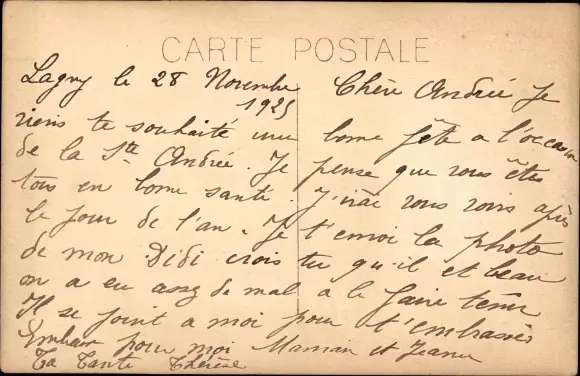 CARTE POSTALE
Lagny le 28 Novembre Chère Andrée Je
1925
viens te souhaité une bonne fête a l'occasion
de la Ste Andrée. Je pense que vous êtes
tous en bonne santé. J'irai vous voir après
le jour de l'an. Je t'envoi la photo
de mon Didi crois tu qu'il et beau
on a eu assez de mal a le faire tenir
Il se joint a moi pour t'embrasser
Embrasse pour moi Maman et Jeanne
Ta Tante Thérèse